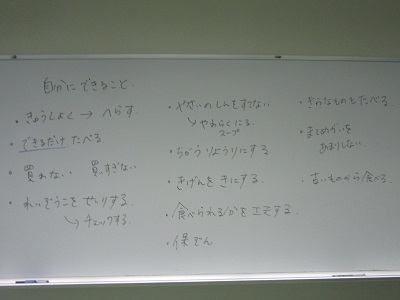 自分にできること、
・きゅうしょく → へらす。
・できるだけ たべる。
・買わない 買いすぎない
・れいぞうこを せいりする。
↳ チェックする。
・やさいのしんもすてない
↳ やわらかくにる。
スープ
・ちがうりょうりにする
・きげんを きにする。
・食べられる を 工夫する。
・保ぞん
・きらいなものもたべる。
・まとめがいを
あまりしない。
・古いものから食べる。